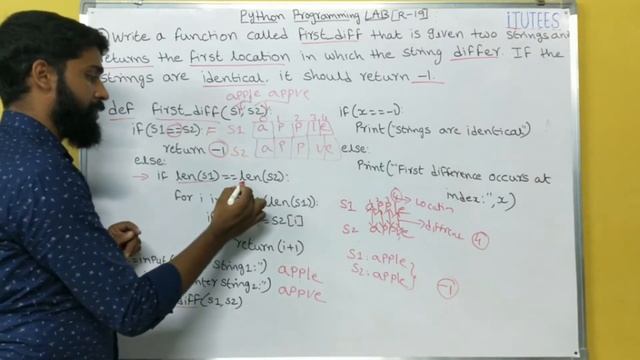 Python Programming LAB [R-19]
iTUTEES
Write a function called first_diff that is given two strings and
returns the first location in which the string differ. If the
strings are identical it should return -1.
apple appve
def first_diff(s1, s2):
if (s1 == s2):
return -1
else:
if len(s1) == len(s2):
for i len(s1):
s2[i]
return (i+1)
string1:")
string2:")
diff(s1, s2)
apple
appve
S1 a p p l e
S2 a p p v e
if (x == -1):
Print("strings are identical")
else:
Print("First difference occurs at
index:", x)
S1 apple
S2
4
S1: apple
S2: apple
-1